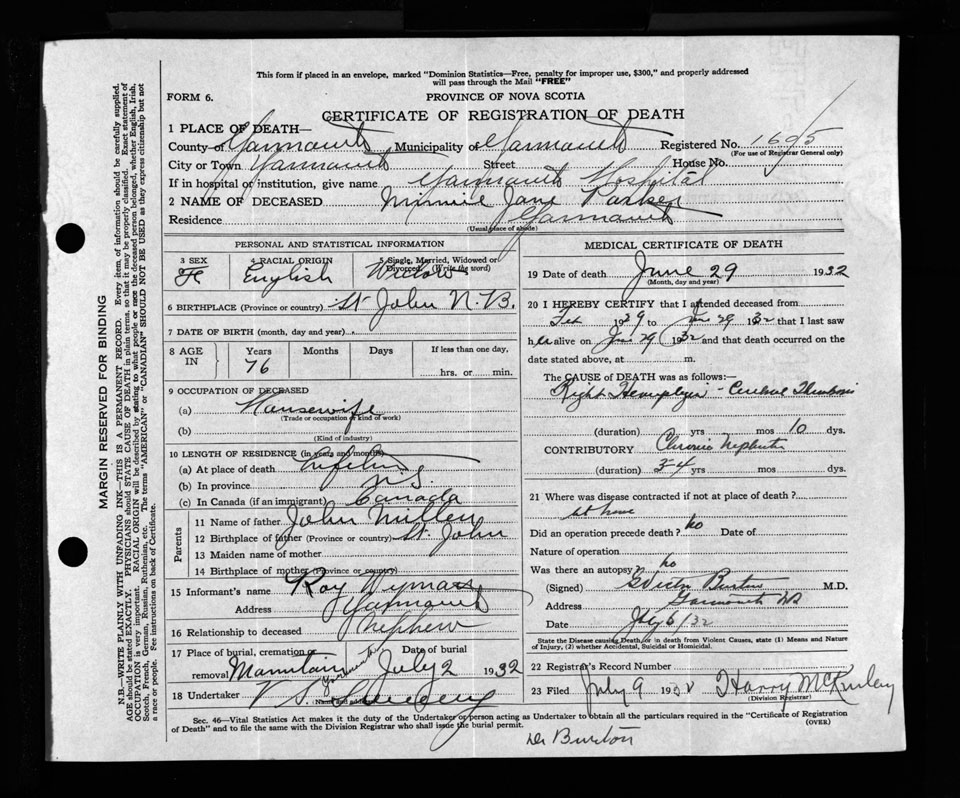 This form if placed in an envelope, marked "Dominion Statistics—Free, penalty for improper use, $300," and properly addressed
will pass through the Mail "FREE"
FORM 6. PROVINCE OF NOVA SCOTIA
CERTIFICATE OF REGISTRATION OF DEATH
1 PLACE OF DEATH—
County of Yarmouth Municipality of Yarmouth Registered No. 1695
(For use of Registrar General only)
City or Town Yarmouth Street House No.
If in hospital or institution, give name Yarmouth Hospital
2 NAME OF DECEASED Minnie Jane Parker
Residence Yarmouth
(Usual place of abode)
PERSONAL AND STATISTICAL INFORMATION
3 SEX 4 RACIAL ORIGIN 5 Single, Married, Widowed or
Divorced (Write the word)
Fe English Widow
6 BIRTHPLACE (Province or country) St John N.B.
7 DATE OF BIRTH (month, day and year)
8 AGE IN Years Months Days If less than one day,
76
hrs. or min.
9 OCCUPATION OF DECEASED
(a) Housewife
(Trade or occupation or kind of work)
(b)
(Kind of industry)
10 LENGTH OF RESIDENCE (in years and months)
(a) At place of death lifetime
(b) In province N.S.
(c) In Canada (if an immigrant) Canada
Parents
11 Name of father John Miller
12 Birthplace of father (Province or country) St. John
13 Maiden name of mother
14 Birthplace of mother (Province or country)
15 Informant's name Roy Wyman
Address Yarmouth
16 Relationship to deceased Nephew
17 Place of burial, cremation or Date of burial
removal Mountain Yarmouth July 2 1932
18 Undertaker V S
(Name and address)
MEDICAL CERTIFICATE OF DEATH
19 Date of death June 29 1932
(Month, day and year)
20 I HEREBY CERTIFY that I attended deceased from
Feb 1929 to June 29 1932 that I last saw
her alive on June 29 1932 and that death occurred on the
date stated above, at m.
The CAUSE of DEATH was as follows:—
Right Hemiplegia - Cerebral Thrombosis
(duration) yrs mos 10 dys.
CONTRIBUTORY Chronic Nephritis
(duration) 3-4 yrs mos dys.
21 Where was disease contracted if not at place of death?
at home
Did an operation precede death? No Date of
Nature of operation
Was there an autopsy? No
(Signed) Burton M.D.
Address Yarmouth NS
Date July 6/32
State the Disease causing Death, or in death from Violent Causes, state (1) Means and Nature
of Injury, (2) whether Accidental, Suicidal or Homicidal.
22 Registrar's Record Number
23 Filed July 9 1932 Harry McKinley
(Division Registrar)
Sec. 46—Vital Statistics Act makes it the duty of the Undertaker or person acting as Undertaker to obtain all the particulars required in the "Certificate of Registration
of Death" and to file the same with the Division Registrar who shall issue the burial permit. (OVER)
Dr Burton
MARGIN RESERVED FOR BINDING
N.B.—WRITE PLAINLY WITH UNFADING INK—THIS IS A PERMANENT RECORD. Every item of information should be carefully supplied.
AGE should be stated EXACTLY. PHYSICIANS should STATE CAUSE OF DEATH in plain terms, so that it may be properly classified. Exact statement of
OCCUPATION is very important. RACIAL ORIGIN will be described by stating to what people or race the deceased person belonged, whether English, Irish,
Scotch, French, German, Russian, Ruthenian, etc. The terms "AMERICAN" or "CANADIAN" SHOULD NOT BE USED as they express citizenship but not
a race or people. See instructions on back of Certificate.